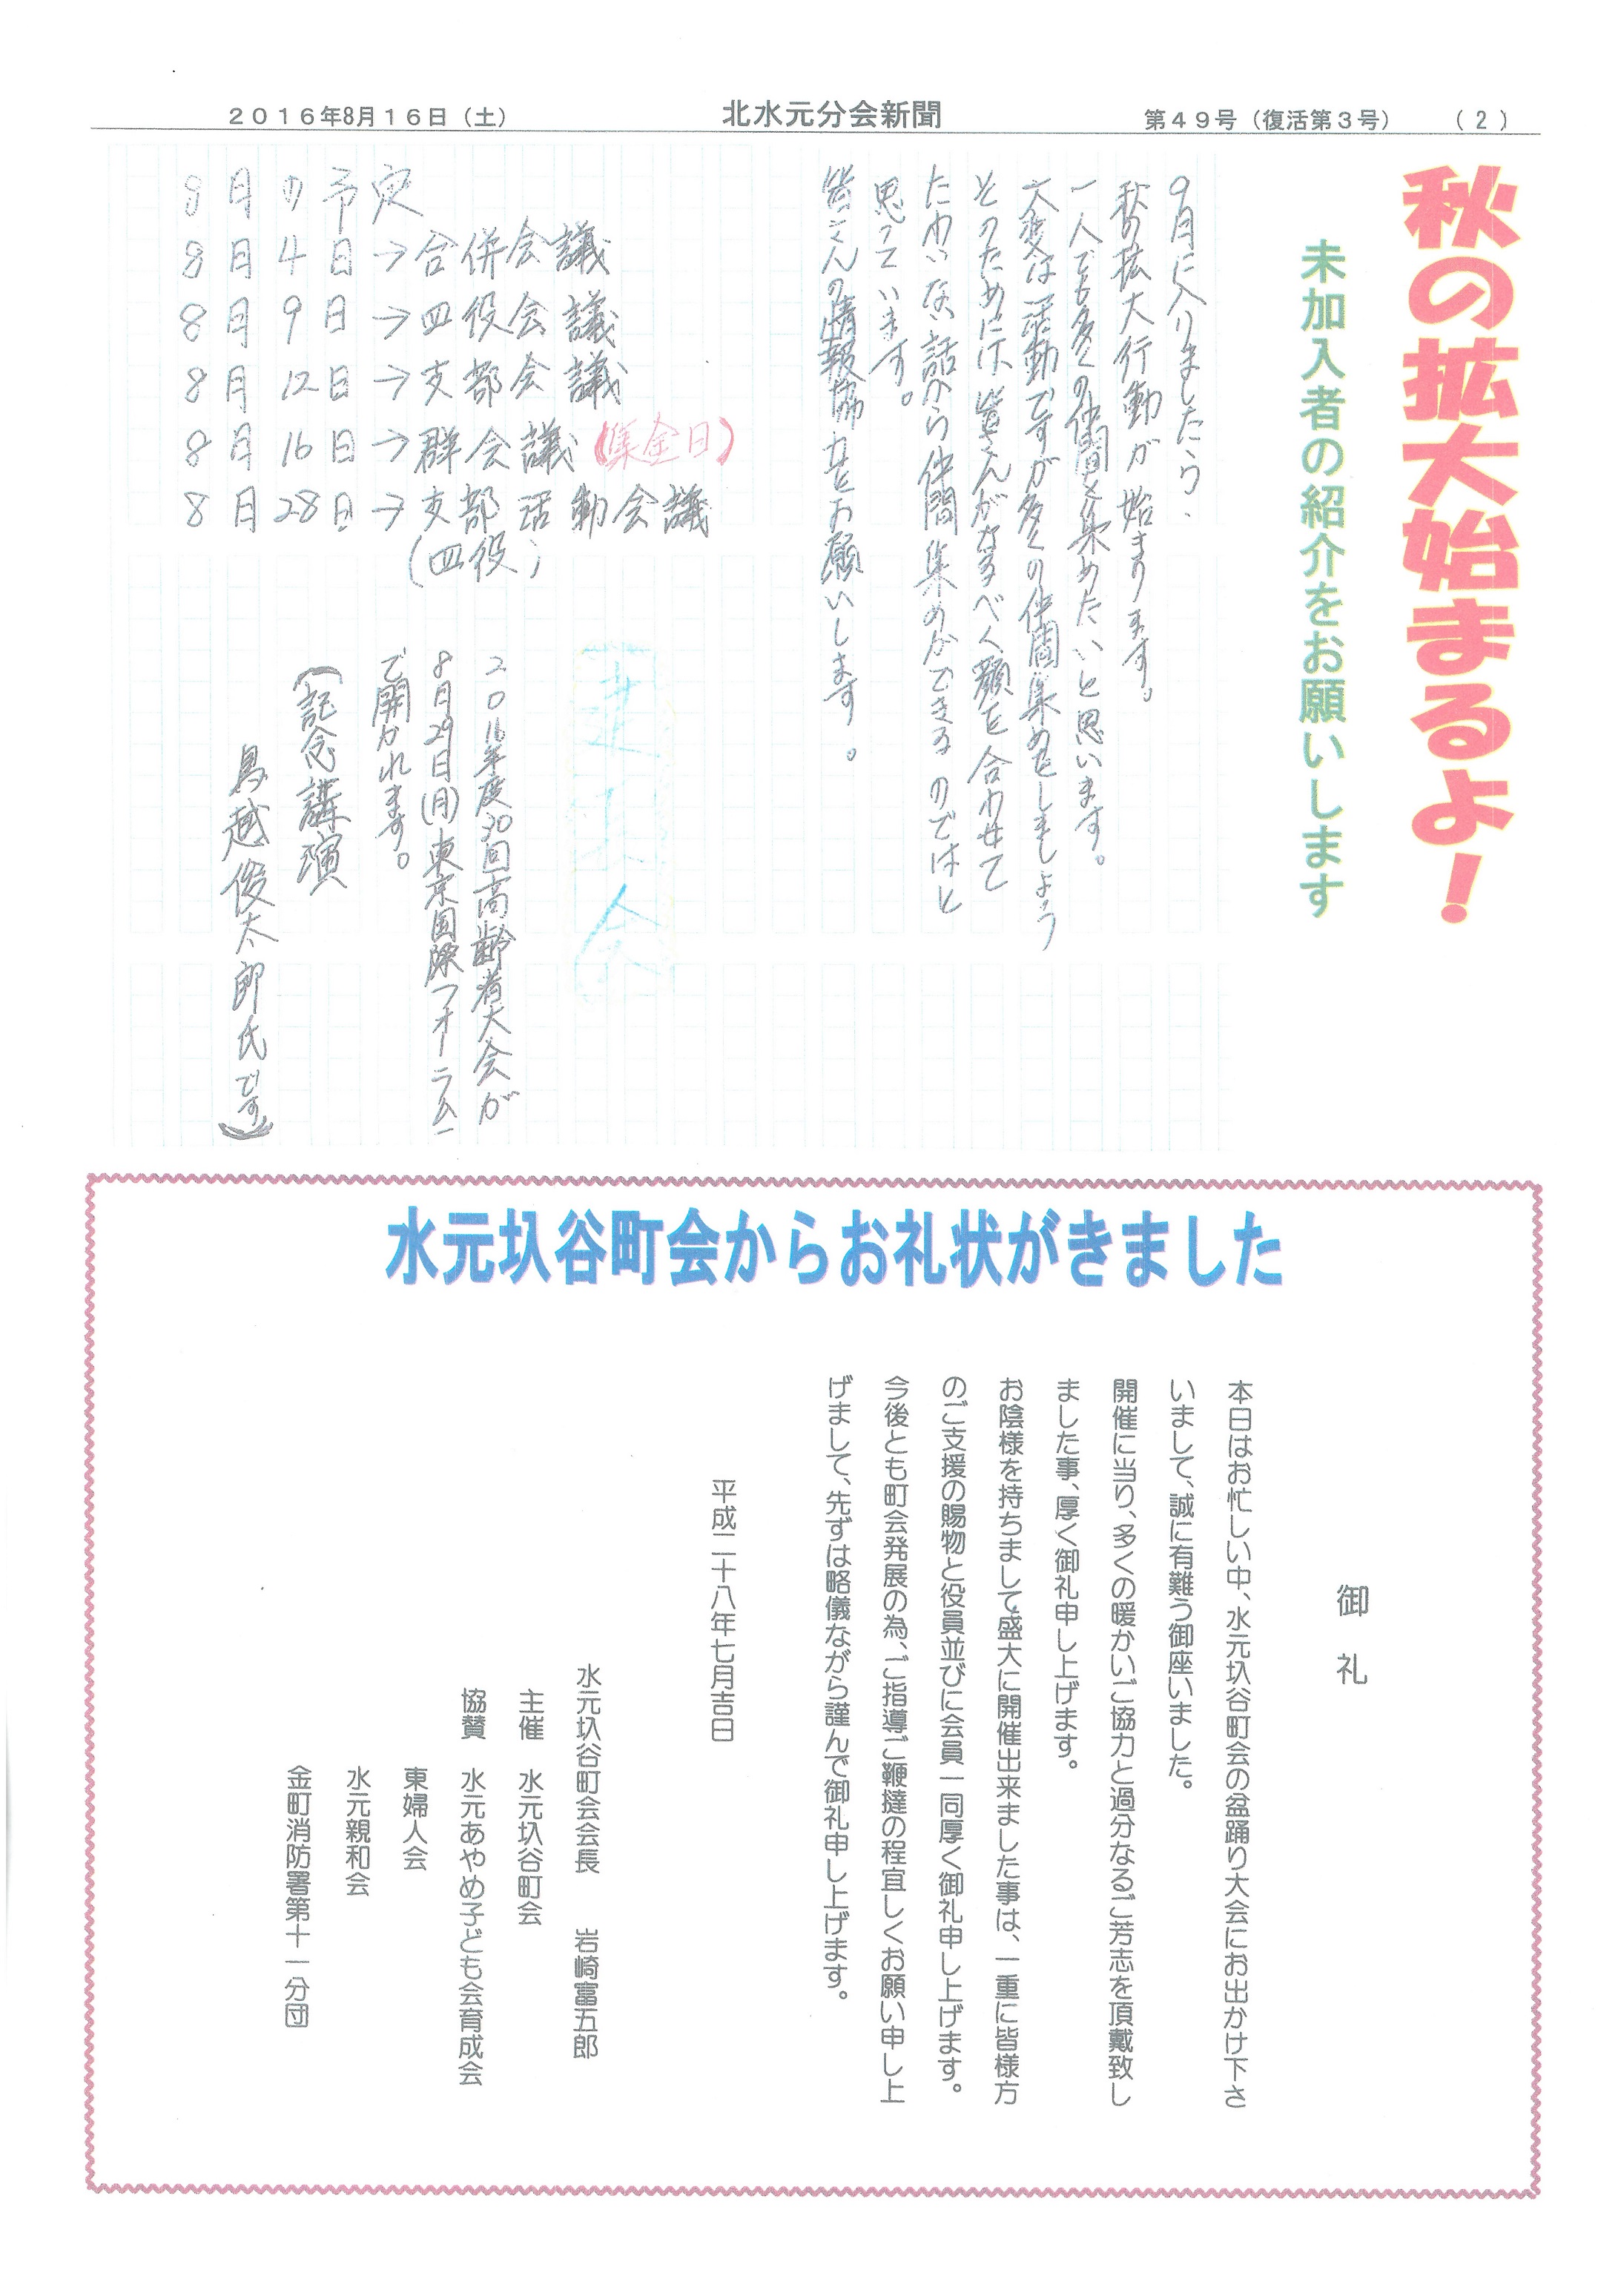 2016年8月16日（土）
北水元分会新聞
第49号（復活第3号）
（2）
秋の拡大始まるよ！
未加入者の紹介をお願いします
9月に入りましたら、
秋の拡大行動が始まります。
一人でも多くの仲間を集めたいと思います。
大変な活動ですが多くの仲間集めをしましょう
そのためには皆さんがなるべく顔を合わせて
たわいない話から仲間集めができるのではと
思っています。
皆さんの情報協力をお願いします。
8月の予定
8月4日→合併会議
8月9日→四役会議
8月12日→支部会議
8月16日→群会議（集金日）
8月28日→支部活動会議
（四役）
2016年度30回高齢者大会が
8月29日(月)東京国際フォーラム
で開かれます。
（記念講演
鳥越俊太郎氏です）
水元圦谷町会からお礼状がきました
御礼
本日はお忙しい中、水元圦谷町会の盆踊り大会にお出かけ下さ
いまして、誠に有難う御座いました。
開催に当り、多くの暖かいご協力と過分なるご芳志を頂戴致し
ました事、厚く御礼申し上げます。
お陰様を持ちまして盛大に開催出来ました事は、一重に皆様方
のご支援の賜物と役員並びに会員一同厚く御礼申し上げます。
今後とも町会発展の為、ご指導ご鞭撻の程宜しくお願い申し上
げまして、先ずは略儀ながら謹んで御礼申し上げます。
平成二十八年七月吉日
水元圦谷町会会長　岩崎富五郎
主催　水元圦谷町会
協賛　水元あやめ子ども会育成会
東婦人会
水元親和会
金町消防署第十一分団